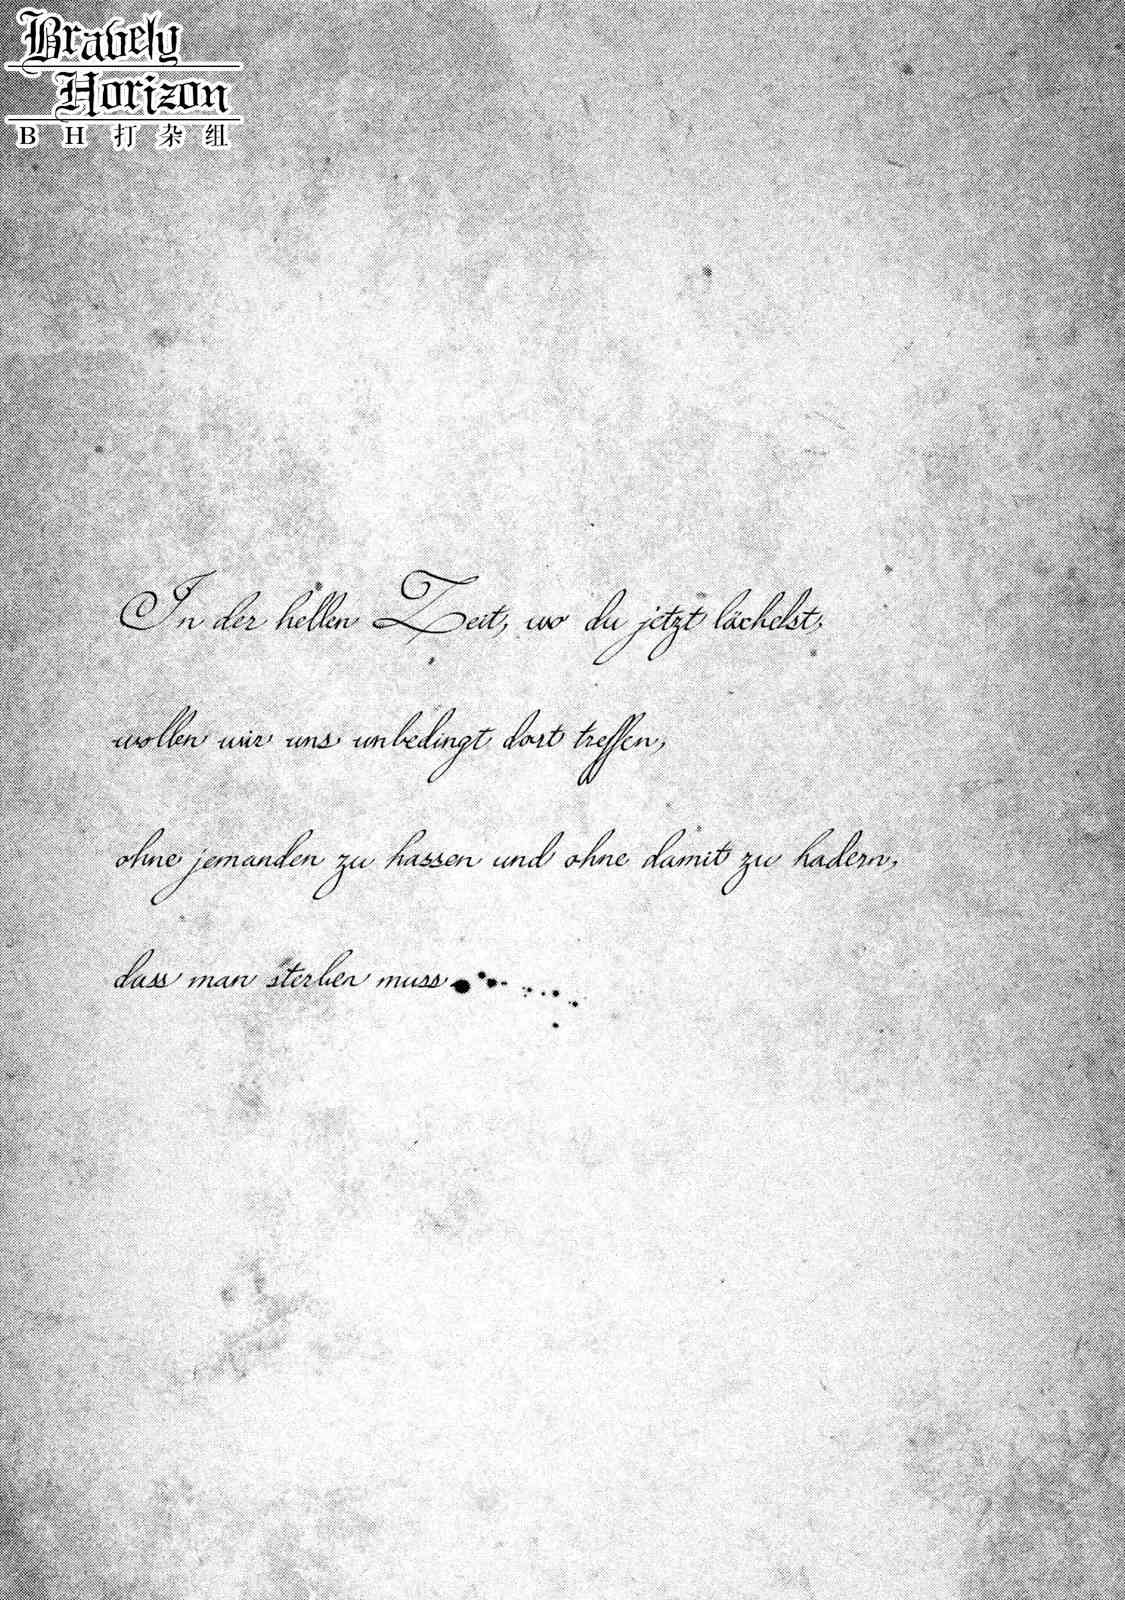 Bravely
Horizon
BH打杂组
In der hellen Zeit, wo du jetzt lächelst,
wollen wir uns unbedingt dort treffen,
ohne jemanden zu hassen und ohne damit zu hadern,
dass man sterben muss.